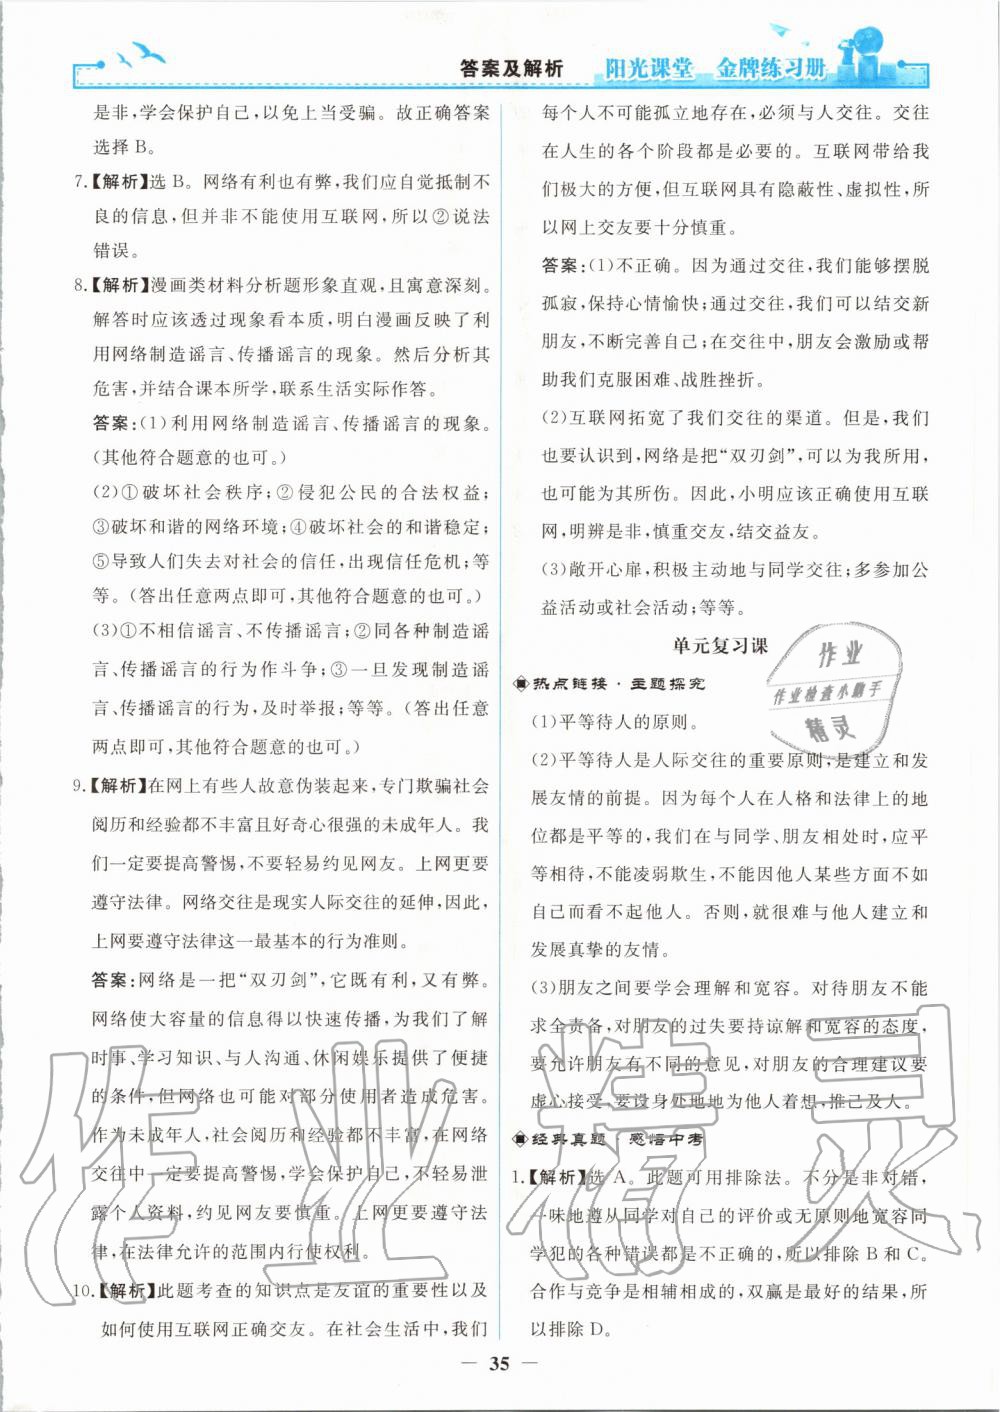 答案及解析
阳光课堂 金牌练习册
是非,学会保护自己,以免上当受骗。故正确答案
选择 B。
7.【解析】选 B。网络有利也有弊,我们应自觉抵制不
良的信息,但并非不能使用互联网,所以②说法
错误。
8.【解析】漫画类材料分析题形象直观,且寓意深刻。
解答时应该透过现象看本质,明白漫画反映了利
用网络制造谣言、传播谣言的现象。然后分析其
危害,并结合课本所学,联系生活实际作答。
答案:(1)利用网络制造谣言、传播谣言的现象。
(其他符合题意的也可。)
(2)①破坏社会秩序;②侵犯公民的合法权益;
③破坏和谐的网络环境;④破坏社会的和谐稳定;
⑤导致人们失去对社会的信任,出现信任危机;等
等。(答出任意两点即可,其他符合题意的也可。)
(3)①不相信谣言、不传播谣言;②同各种制造谣
言、传播谣言的行为作斗争;③一旦发现制造谣
言、传播谣言的行为,及时举报;等等。(答出任意
两点即可,其他符合题意的也可。)
9.【解析】在网上有些人故意伪装起来,专门欺骗社会
阅历和经验都不丰富且好奇心很强的未成年人。我
们一定要提高警惕,不要轻易约见网友。上网更要
遵守法律。网络交往是现实人际交往的延伸,因此,
上网要遵守法律这一最基本的行为准则。
答案:网络是一把“双刃剑”,它既有利,又有弊。
网络使大容量的信息得以快速传播,为我们了解
时事、学习知识、与人沟通、休闲娱乐提供了便捷
的条件,但网络也可能对部分使用者造成危害。
作为未成年人,社会阅历和经验都不丰富,在网络
交往中一定要提高警惕,学会保护自己,不轻易泄
露个人资料,约见网友要慎重。上网更要遵守法
律,在法律允许的范围内行使权利。
10.【解析】此题考查的知识点是友谊的重要性以及
如何使用互联网正确交友。在社会生活中,我们
每个人不可能孤立地存在,必须与人交往。交往
在人生的各个阶段都是必要的。互联网带给我
们极大的方便,但互联网具有隐蔽性、虚拟性,所
以网上交友要十分慎重。
答案:(1)不正确。因为通过交往,我们能够摆脱
孤寂,保持心情愉快;通过交往,我们可以结交新
朋友,不断完善自己;在交往中,朋友会激励或帮
助我们克服困难、战胜挫折。
(2)互联网拓宽了我们交往的渠道。但是,我们
也要认识到,网络是把“双刃剑”,可以为我所用,
也可能为其所伤。因此,小明应该正确使用互联
网,明辨是非,慎重交友,结交益友。
(3)敞开心扉,积极主动地与同学交往;多参加公
益活动或社会活动;等等。
单元复习课
热点链接·主题探究
(1)平等待人的原则。
(2)平等待人是人际交往的重要原则,是建立和发
展友情的前提。因为每个人在人格和法律上的地
位都是平等的,我们在与同学、朋友相处时,应平
等相待,不能凌弱欺生,不能因他人某些方面不如
自己而看不起他人。否则,就很难与他人建立和
发展真挚的友情。
(3)朋友之间要学会理解和宽容。对待朋友不能
求全责备,对朋友的过失要持谅解和宽容的态度,
要允许朋友有不同的意见,对朋友的合理建议要
虚心接受,要设身处地地为他人着想,推己及人。
经典真题·感悟中考
1.【解析】选 A。此题可用排除法。不分是非对错,
一味地遵从同学对自己的评价或无原则地宽容同
学犯的各种错误都是不正确的,所以排除 B 和 C。
合作与竞争是相辅相成的,双赢是最好的结果,所
以排除 D。
作业
作业检查小助手
精灵
作业精灵
— 35 —